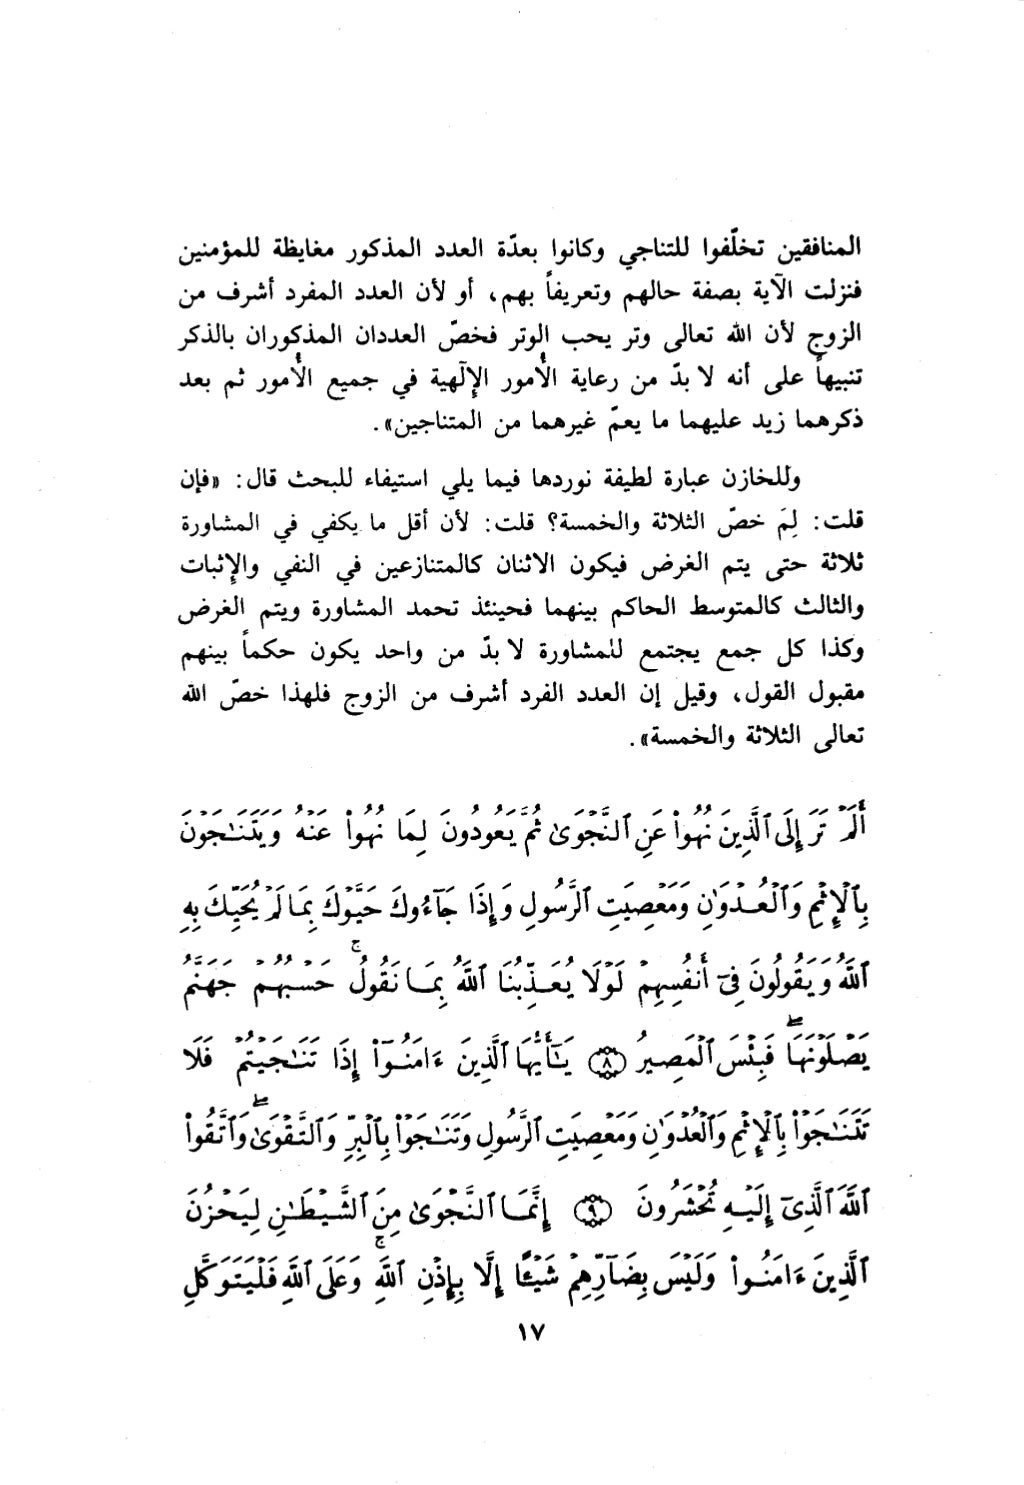 المنافقين تخلّفوا للتناجي وكانوا بعدّة العدد المذكور مغايظة للمؤمنين
فنزلت الآية بصفة حالهم وتعريفاً بهم، أو لأن العدد المفرد أشرف من
الزوج لأن الله تعالى وتر يحب الوتر فخصّ العددان المذكوران بالذكر
تنبيهاً على أنه لا بدّ من رعاية الأُمور الإلٓهية في جميع الأُمور ثم بعد
ذكرهما زيد عليهما ما يعمّ غيرهما من المتناجين».
وللخازن عبارة لطيفة نوردها فيما يلي استيفاء للبحث قال: «فإن
قلت: لِمَ خصّ الثلاثة والخمسة؟ قلت: لأن أقل ما يكفي في المشاورة
ثلاثة حتى يتم الغرض فيكون الاثنان كالمتنازعين في النفي والإِثبات
والثالث كالمتوسط الحاكم بينهما فحينئذ تحمد المشاورة ويتم الغرض
وكذا كل جمع يجتمع للمشاورة لا بدّ من واحد يكون حكماً بينهم
مقبول القول، وقيل إن العدد الفرد أشرف من الزوج فلهذا خصّ الله
تعالى الثلاثة والخمسة».
أَلَمْ تَرَ إِلَى ٱلَّذِينَ نُهُوا۟ عَنِ ٱلنَّجْوَىٰ ثُمَّ يَعُودُونَ لِمَا نُهُوا۟ عَنْهُ وَيَتَنَـٰجَوْنَ
بِٱلْإِثْمِ وَٱلْعُدْوَٰنِ وَمَعْصِيَتِ ٱلرَّسُولِ وَإِذَا جَآءُوكَ حَيَّوْكَ بِمَا لَمْ يُحَيِّكَ بِهِ
ٱللَّهُ وَيَقُولُونَ فِىٓ أَنفُسِهِمْ لَوْلَا يُعَذِّبُنَا ٱللَّهُ بِمَا نَقُولُ ۚ حَسْبُهُمْ جَهَنَّمُ
يَصْلَوْنَهَا ۖ فَبِئْسَ ٱلْمَصِيرُ ﴿٨﴾ يَـٰٓأَيُّهَا ٱلَّذِينَ ءَامَنُوٓا۟ إِذَا تَنَـٰجَيْتُمْ فَلَا
تَتَنَـٰجَوْا۟ بِٱلْإِثْمِ وَٱلْعُدْوَٰنِ وَمَعْصِيَتِ ٱلرَّسُولِ وَتَنَـٰجَوْا۟ بِٱلْبِرِّ وَٱلتَّقْوَىٰ ۖ وَٱتَّقُوا۟
ٱللَّهَ ٱلَّذِىٓ إِلَيْهِ تُحْشَرُونَ ﴿٩﴾ إِنَّمَا ٱلنَّجْوَىٰ مِنَ ٱلشَّيْطَـٰنِ لِيَحْزُنَ
ٱلَّذِينَ ءَامَنُوا۟ وَلَيْسَ بِضَآرِّهِمْ شَيْـًٔا إِلَّا بِإِذْنِ ٱللَّهِ ۚ وَعَلَى ٱللَّهِ فَلْيَتَوَكَّلِ
١٧